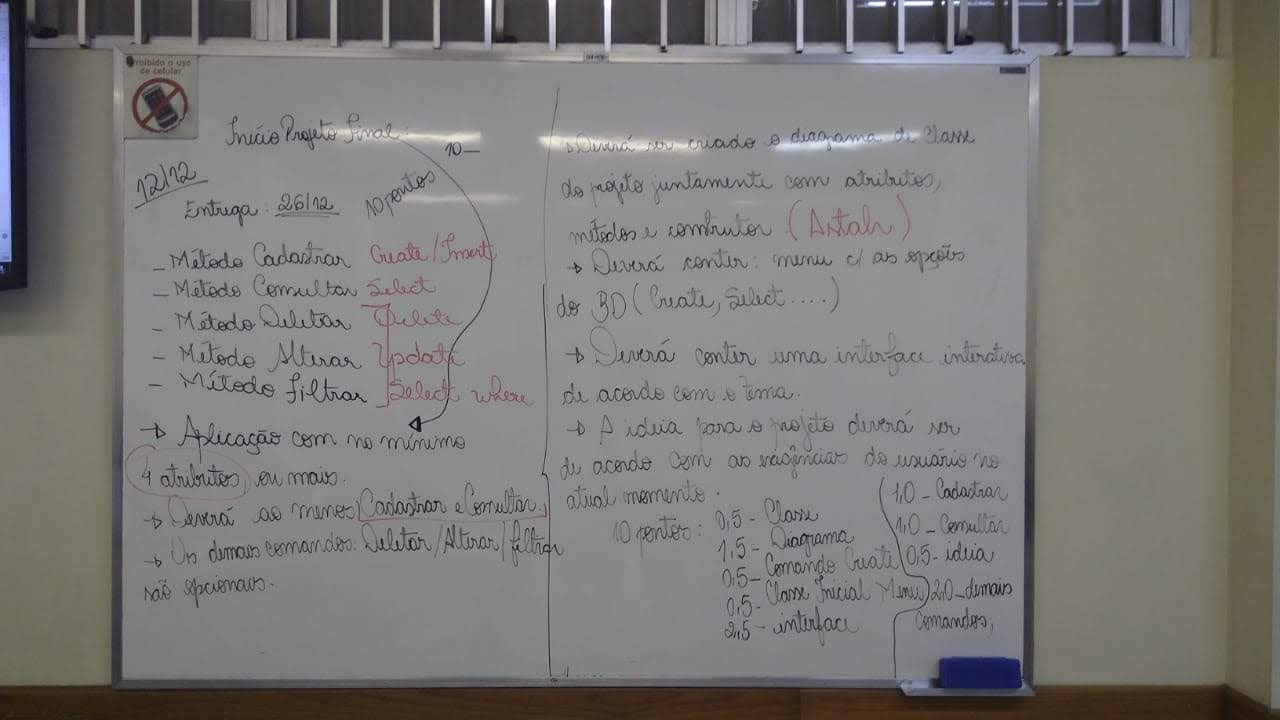 Proibido o uso
de celular
Início Projeto Final:
10
12/12
Entrega: 26/12 10 pontos
- Método Cadastrar Create/Insert
- Método Consultar Select
- Método Deletar Delete
- Método Alterar Update
- Método filtrar Select where
→ Aplicação com no mínimo
4 atributos, ou mais.
→ Deverá ao menos Cadastrar e Consultar.
→ Os demais comandos: Deletar/Alterar/filtrar
são opcionais.
→ Deverá ser criado o diagrama de Classe
do projeto juntamente com atributos,
métodos e construtor (Astah)
→ Deverá conter: menu c/ as opções
do BD (Create, Select....)
→ Deverá conter uma interface interativa
de acordo com o tema.
→ A ideia para o projeto deverá ser
de acordo com as exigências do usuário no
atual momento.
10 pontos: 0,5 - Classe
1,5 - Diagrama
0,5 - Comando Create
0,5 - Classe Inicial Menu
2,5 - interface
1,0 - Cadastrar
1,0 - Consultar
0,5 - ideia
2,0 - demais
comandos,